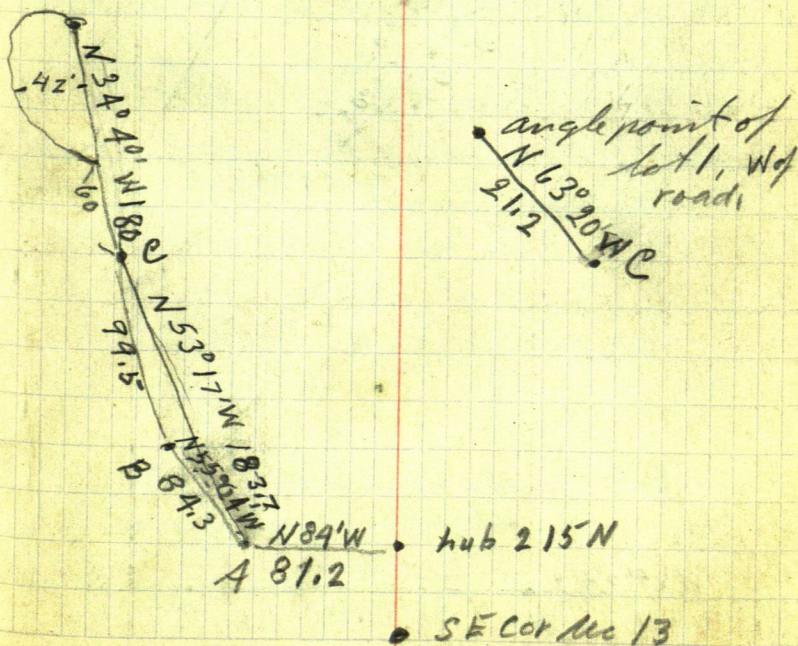 N 34° 40' W 180
42'
60
C
N 53° 17' W 183.7
99.5
B 84.3
N 84' W
A 81.2
hub 215 N
S E Cor Sec 13
angle point of
lot 1, W of
road,
N 63° 20' W
21.2
C